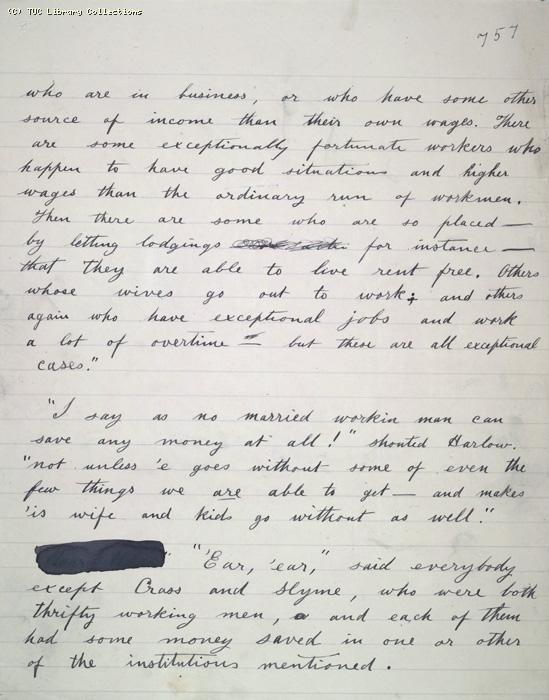 (C) TUC Library Collections
757
who are in business, or who have some other
source of income than their own wages. There
are some exceptionally fortunate workers who
happen to have good situations and higher
wages than the ordinary run of workmen.
Then there are some who are so placed —
by letting lodgings for instance —
that they are able to live rent free. Others
whose wives go out to work; and others
again who have exceptional jobs and work
a lot of overtime — but these are all exceptional
cases."
"I say as no married workin man can
save any money at all!" shouted Harlow.
"not unless 'e goes without some of even the
few things we are able to get — and makes
'is wife and kids go without as well."
"'Ear, 'ear," said everybody
except Crass and Slyme, who were both
thrifty working men, and each of them
had some money saved in one or other
of the institutions mentioned.